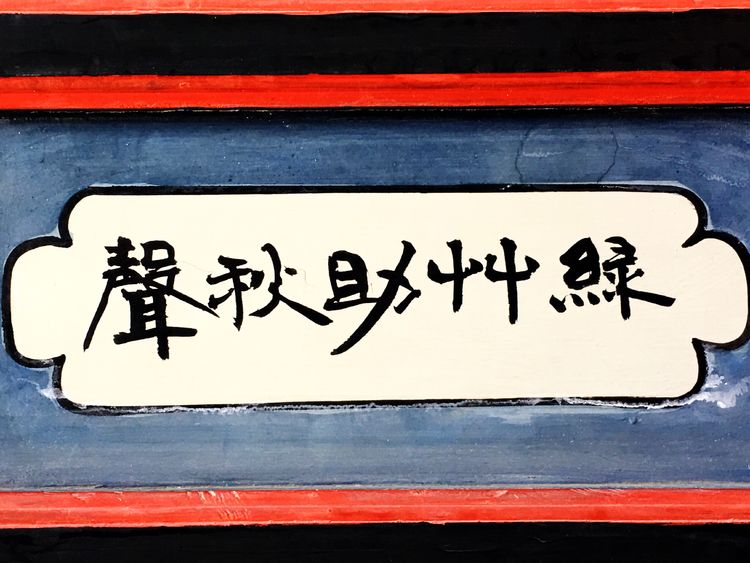 緑艸助秋聲